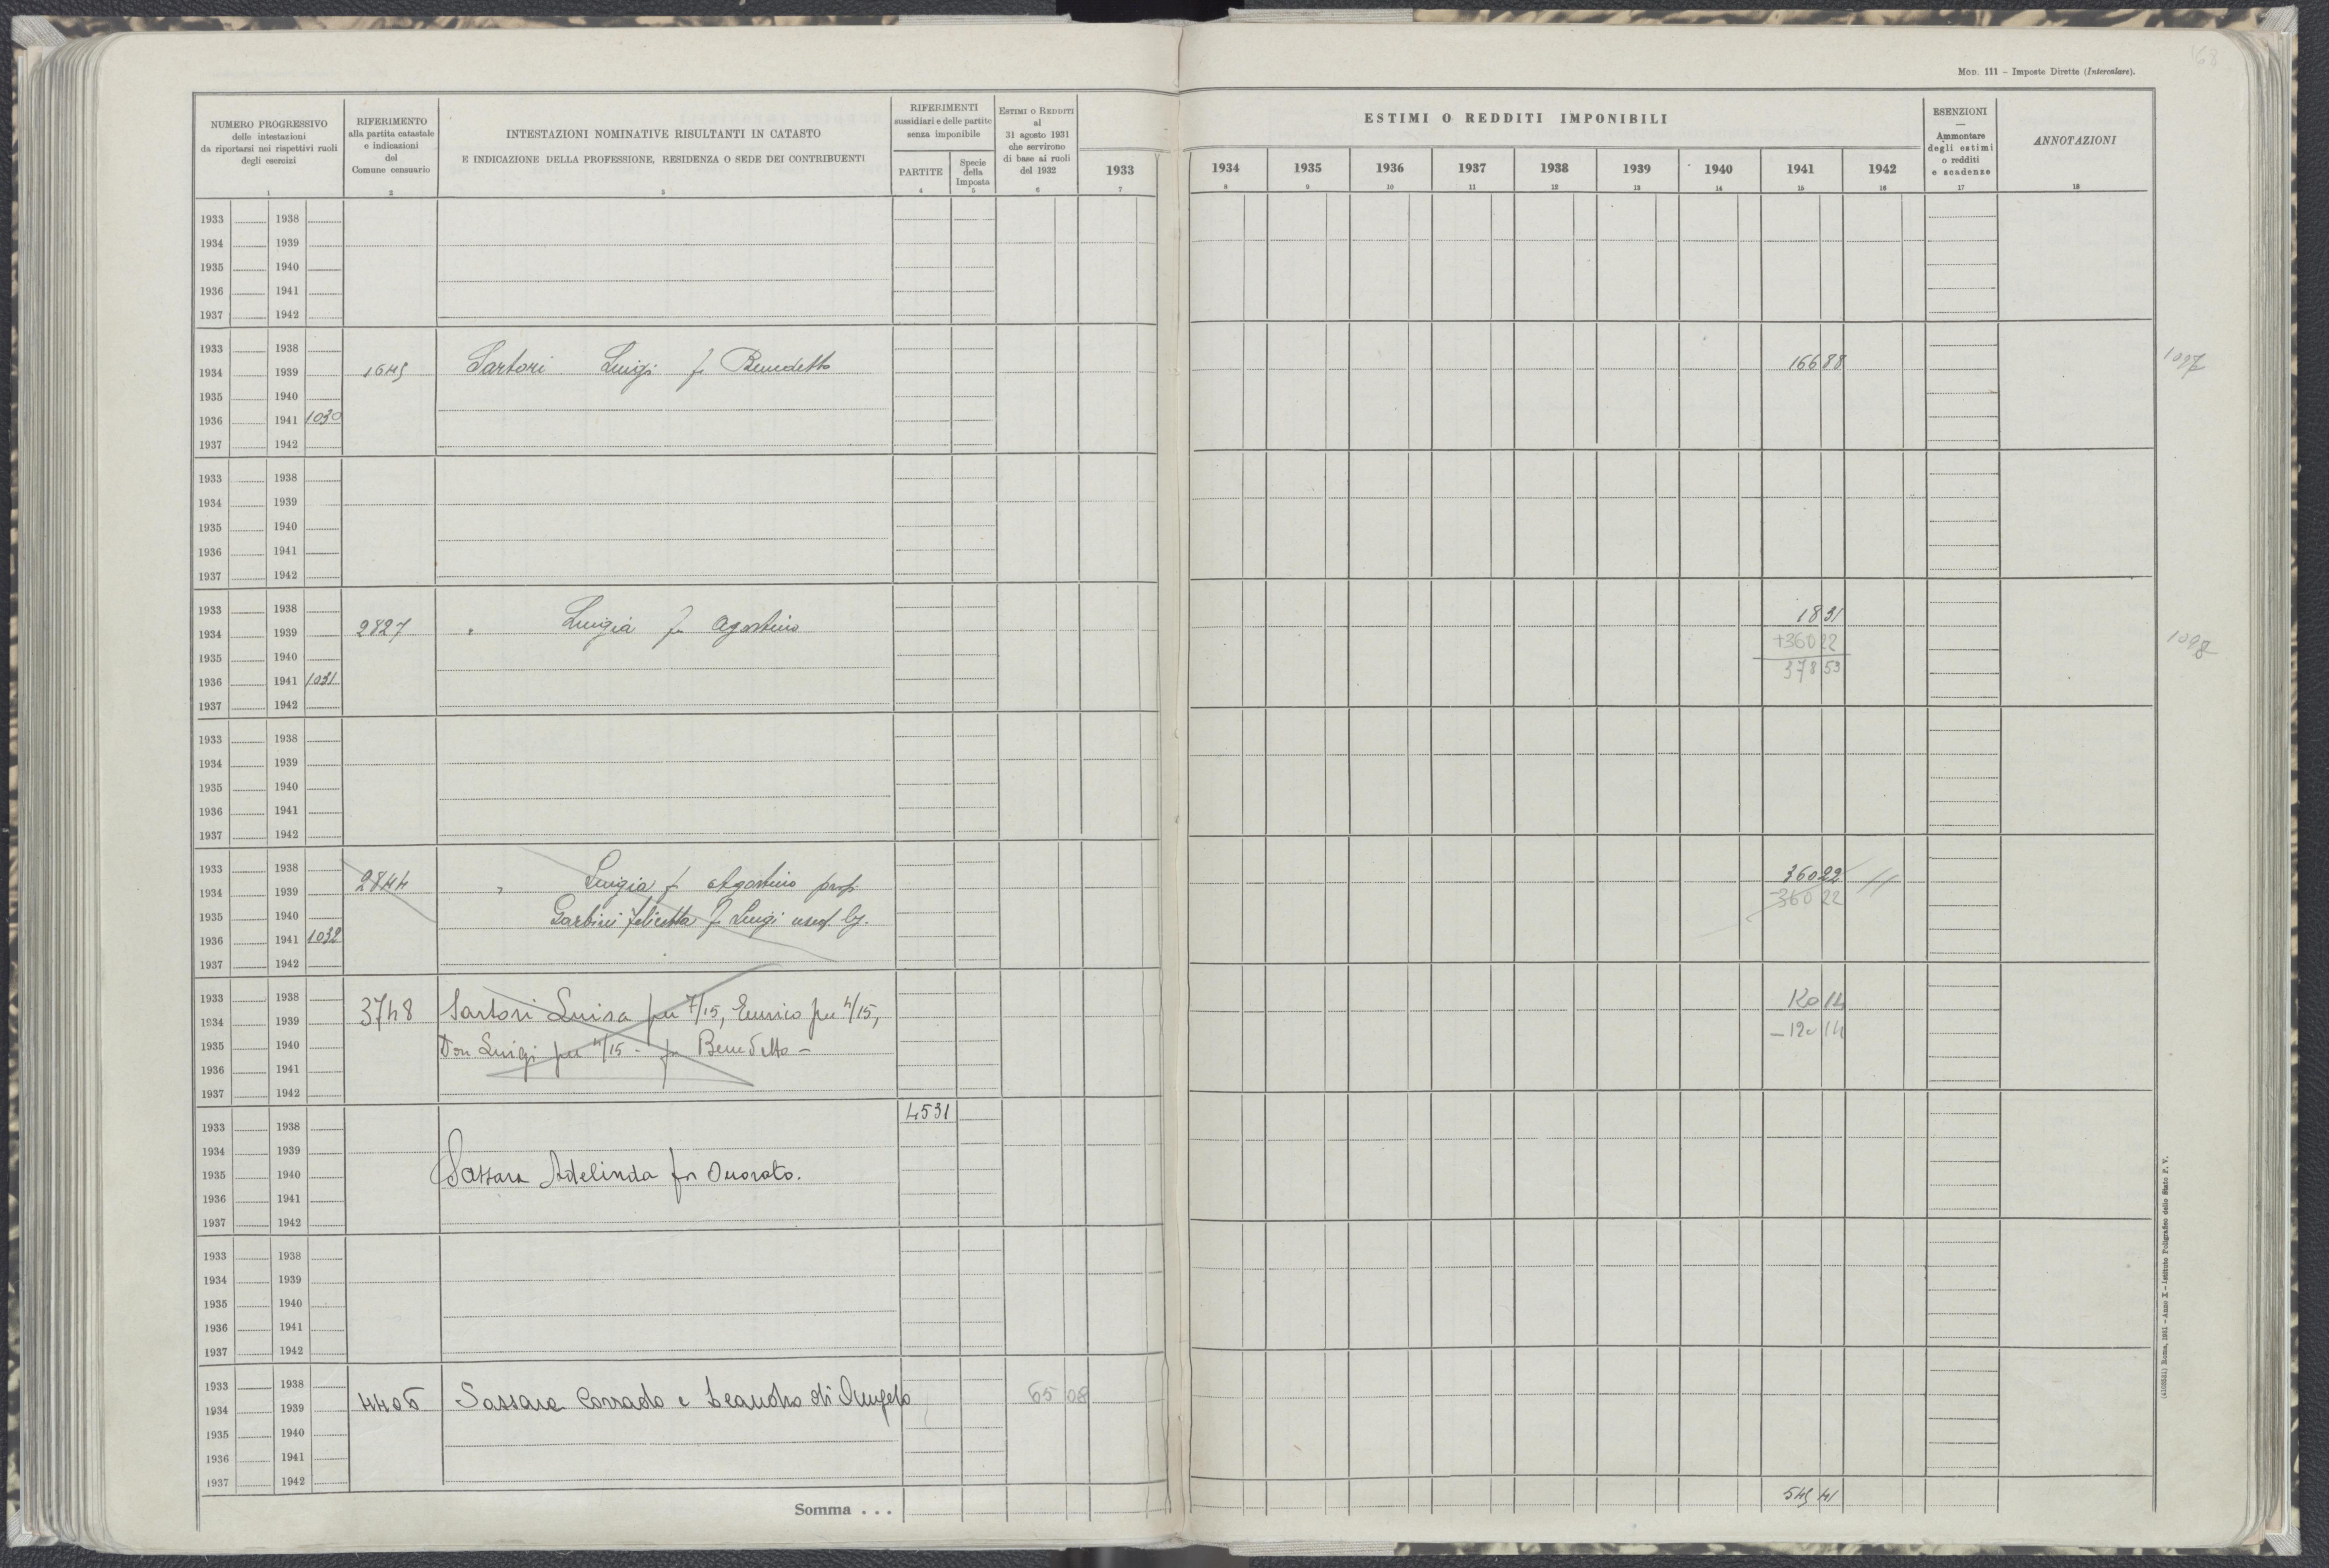 168
MOD. 111 - Imposte Dirette (Intercalare).
NUMERO PROGRESSIVO
delle intestazioni
da riportarsi nei rispettivi ruoli
degli esercizi
1
RIFERIMENTO
alla partita catastale
e indicazioni
del
Comune censuario
2
INTESTAZIONI NOMINATIVE RISULTANTI IN CATASTO
E INDICAZIONE DELLA PROFESSIONE, RESIDENZA O SEDE DEI CONTRIBUENTI
3
RIFERIMENTI
sussidiari e delle partite
senza imponibile
PARTITE
4
Specie
della
Imposta
5
ESTIMI O REDDITI
al
31 agosto 1931
che servirono
di base ai ruoli
del 1932
6
1933
7
ESTIMI O REDDITI IMPONIBILI
1934 1935 1936 1937 1938 1939 1940 1941 1942
8 9 10 11 12 13 14 15 16
ESENZIONI
—
Ammontare
degli estimi
o redditi
e scadenze
17
ANNOTAZIONI
18
1933 1938
1934 1939
1935 1940
1936 1941
1937 1942
1933 1938
1934 1939 1645 Sartori Luigi fu Benedetto 166 88 1097
1935 1940
1936 1941 1030
1937 1942
1933 1938
1934 1939
1935 1940
1936 1941
1937 1942
1933 1938 18 31
1934 1939 2827 " Luigia fu Agostino +360 22 1098
1935 1940 378 53
1936 1941 1031
1937 1942
1933 1938
1934 1939
1935 1940
1936 1941
1937 1942
1933 1938 360 22 //
1934 1939 2844 " Luigia f. Agostino prop. -360 22
1935 1940 Garbini Felicetta f. Luigi usuf. lg.
1936 1941 1032
1937 1942
1933 1938 3748 Sartori Luisa per 7/15, Enrico per 4/15, 120 14
1934 1939 - 120 14
1935 1940 Don Luigi per 4/15 - fu Benedetto -
1936 1941
1937 1942
4531
1933 1938
1934 1939
1935 1940 Sassara Adelinda fu Onorato.
1936 1941
1937 1942
1933 1938
1934 1939
1935 1940
1936 1941
1937 1942
1933 1938
1934 1939 4406 Sassara Corrado e Leandro di Angelo 65 08
1935 1940
1936 1941
1937 1942
Somma . . . 545 41
(4103531) Roma, 1931 - Anno X - Istituto Poligrafico dello Stato P. V.